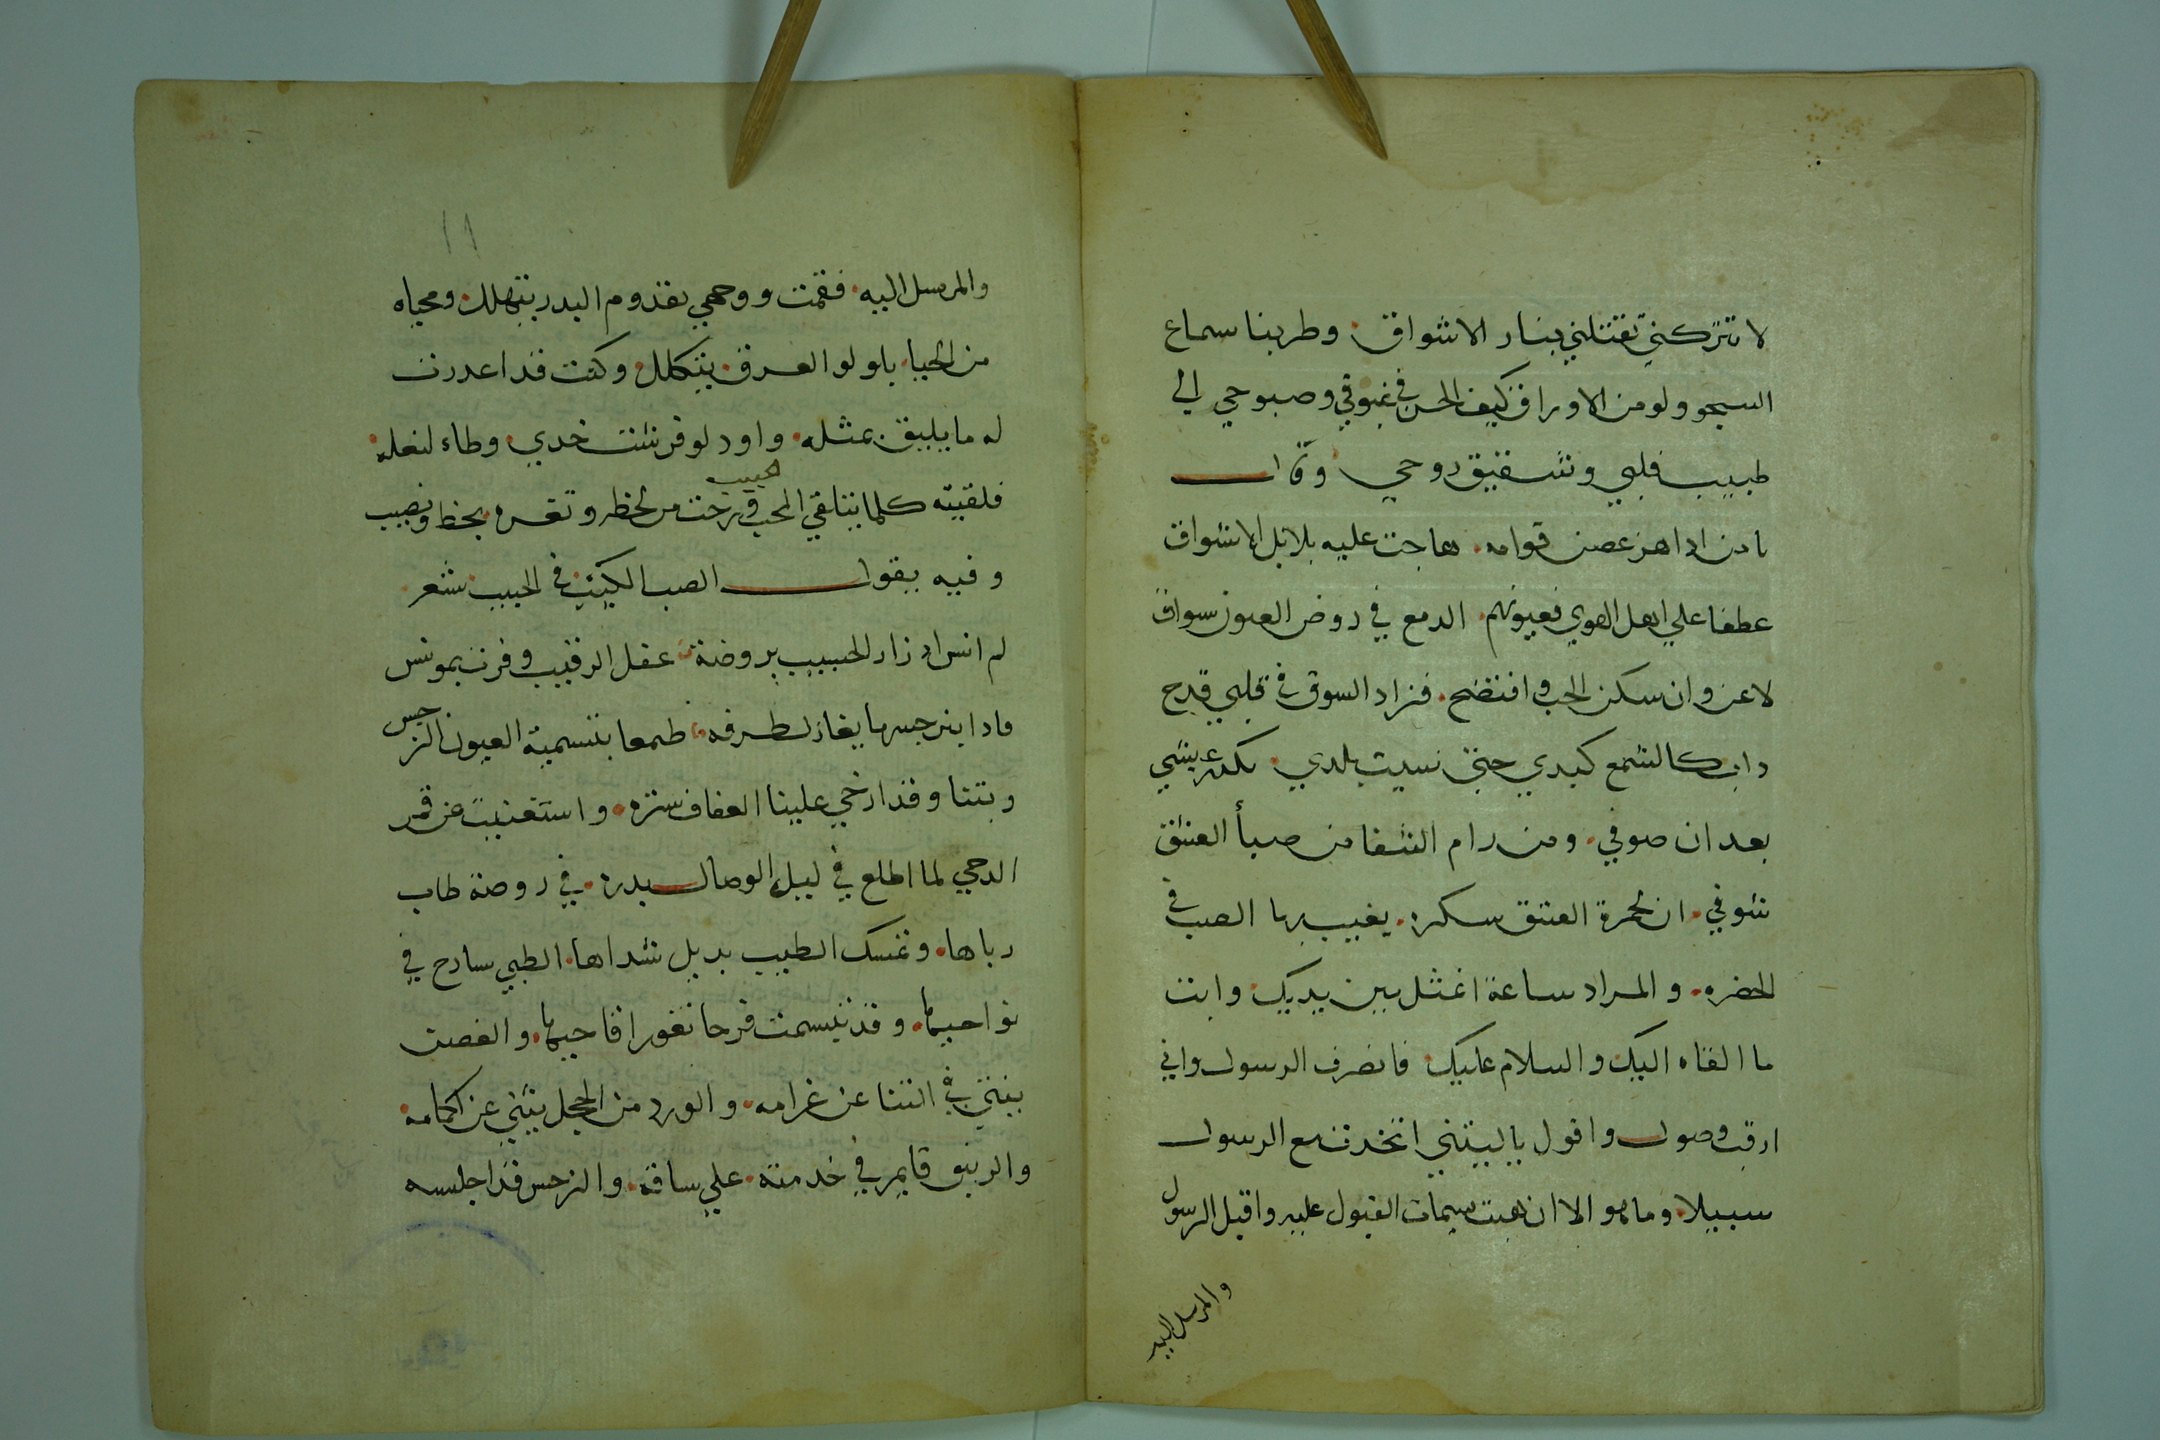 لا تتركني تقتلني بنار الاشواق وطربنا سماع
السجو ولو من الاوراق كيف الحسن في غبوقي وصبوحي الي
طبيب قلبي وشقيق روحي وقال
يا من اذا هز غصن قوامه هاجت عليه بلابل الاشواق
عطفا علي اهل الهوي فعيونهم الدمع في روض العيون سواق
لا عز وان سكن الحب وافتضح فزاد السوق في قلبي قدح
داب كالشمع كبدي حتي نسيت بلدي تكدر عيشي
بعد ان صوفي ومن رام الشفا من صبأ العشق
شوفي ان لخمرة العشق سكره يغيب بها الصب في
الحضره والمراد ساعة اتمثل بين يديك وابث
ما القاه اليك والسلام عليك فانصرف الرسول واني
ارقب وصول واقول ياليتني اتخدت مع الرسول
سبيلا وما هو الا ان هبت نسمات القبول عليه واقبل الرسول
والمرسل اليه
١١
والمرسل اليه فقمت ووجهي بقدوم البدر يتهلل ومحياه
من الحيا بلولو العرق يتكلل وكنت قد اعددت
له ما يليق بمثله واود لو فرشت خدي وطاء لنعله
فلقيته كلما يتلقي المحب الحبيب وفرحت من لحظه وتغره بحظ ونصيب
وفيه يقول الصب الكئيب في الحبيب شعر
لم انس اد زار الحبيب بروضة غفل الرقيب وفزت بمونس
فادا بنرجسها يغازل طرفه طمعا بتسمية العيون النرجس
وبتنا وقد ارخي علينا العفاف ستره واستغنيت عن قمر
الدجي لما اطلع في ليل الوصال بدره في روضة طاب
رباها وتمسك الطيب بديل شداها الظبي سارح في
نواحيها وقد تبسمت فرحا ثغور اقاحيها والغصن
ينثني في انثنا عن غرامه والورد من الخجل ينثني عن اكمامه
والزنبق قايم في خدمته علي ساقه والنرجس قد اجلسه